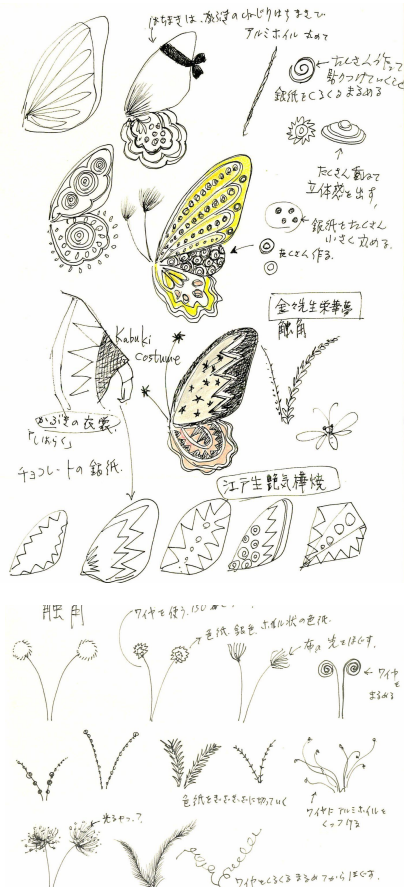 はちまきは、友達のねじりはちまきで
アルミホイル丸めて
たくさん作って
貼りつけていくこと
銀紙をくるくるまるめる
たくさん重ねて
立体感を出す
銀紙をたくさん
小さく丸める。
たくさん作る。
金々先生栄華夢
触角
Kabuki
costume
かぶきの衣裳
「しばらく」
チョコレートの銀紙.
江戸生艶気樺焼
触角
ワイヤを使う.
色紙. 銀色. ホイル状の色紙.
布の先をほぐす.
ワイヤ
を
まるめる
色紙をぎざぎざに切っていく
ワイヤにアルミホイルを
くっつける
ワイヤをくるくるまるめてからほぐす.